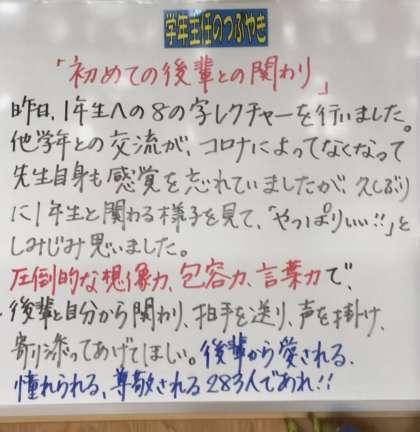 学年主任のつぶやき
「初めての後輩との関わり」
昨日、1年生への8の字レクチャーを行いました。
他学年との交流が、コロナによってなくなって
先生自身も感覚を忘れていましたが、久しぶり
に1年生と関わる様子を見て、「やっぱりいい!!」と
しみじみ思いました。
圧倒的な想像力、包容力、言葉力で、
後輩と自分から関わり、拍手を送り、声を掛け、
寄り添ってあげてほしい。後輩から愛される、
憧れられる、尊敬される283人であれ!!